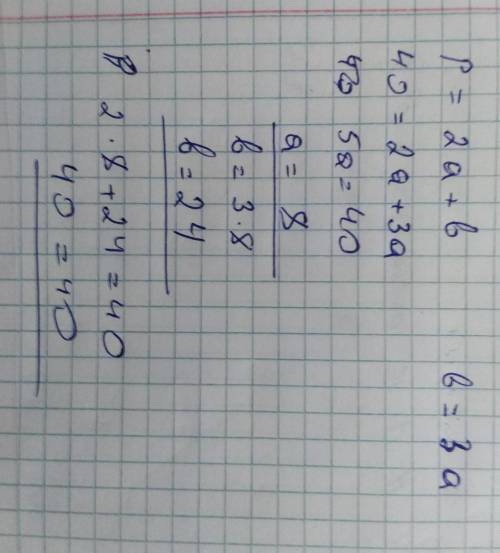 P = 2a + b        b = 3a
40 = 2a + 3a
5a = 40
a = 8
b = 3·8
b = 24
2·8 + 24 = 40
40 = 40